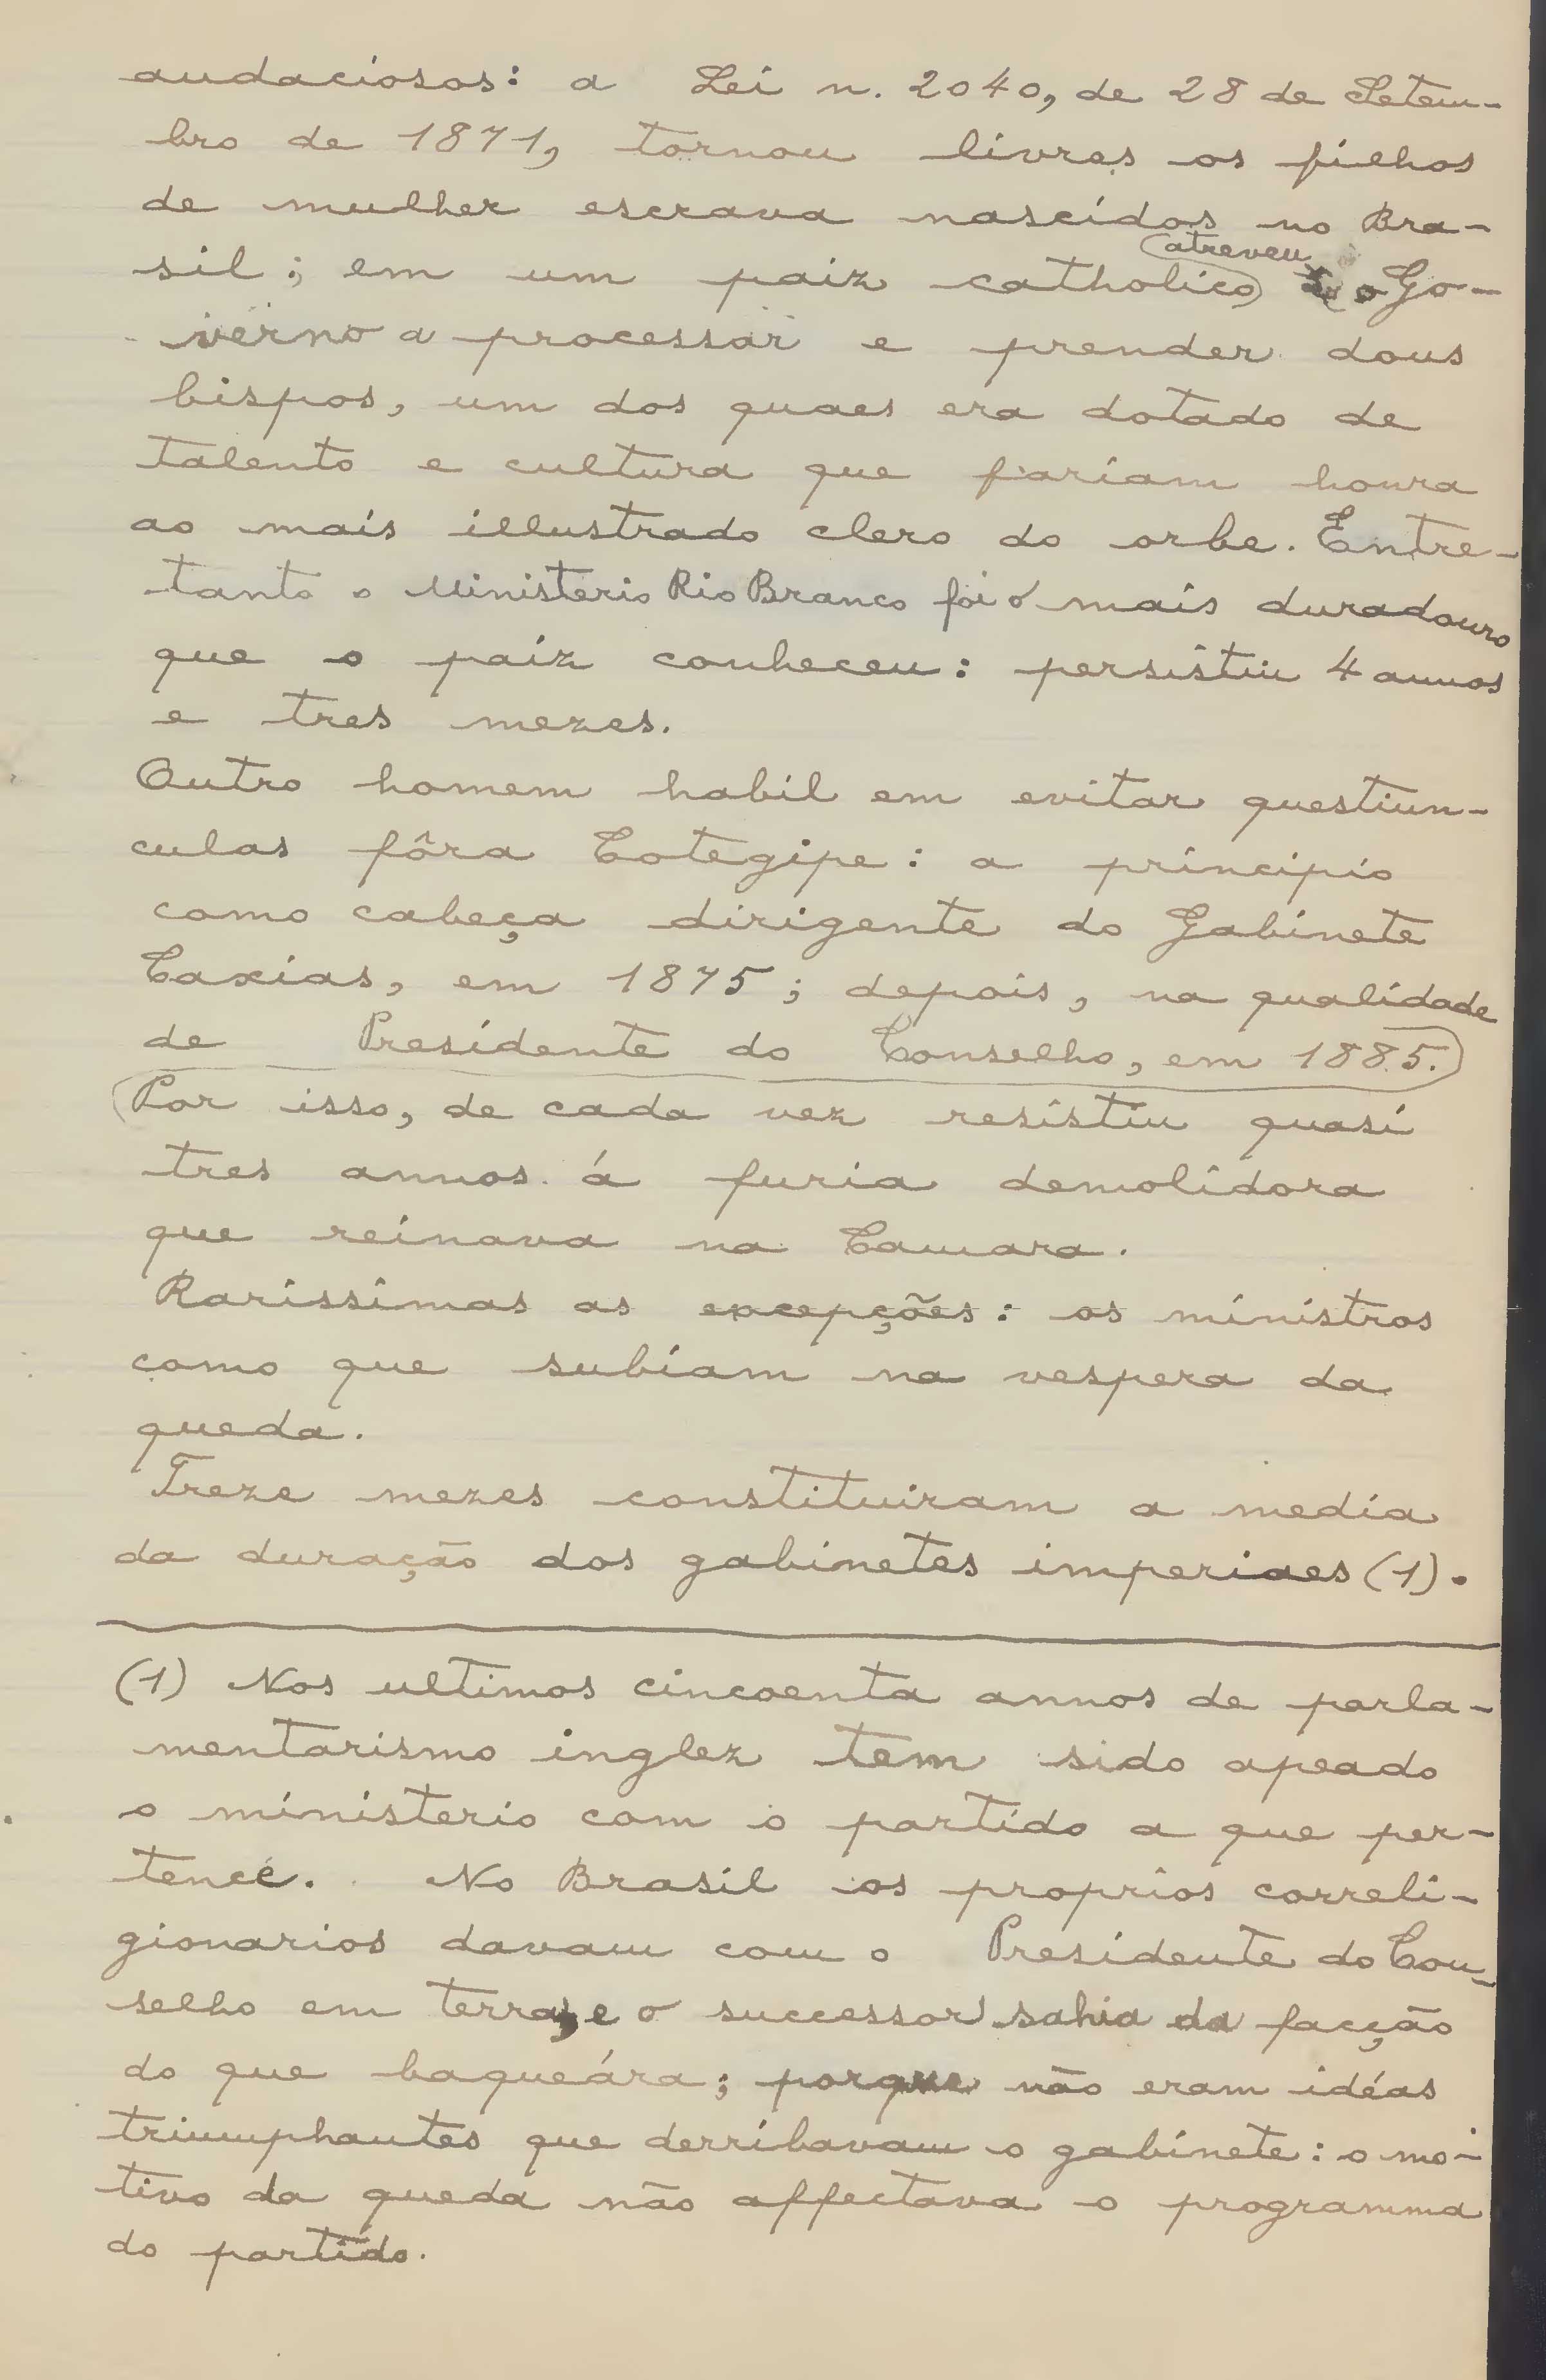 audaciosos: a Lei n. 2040, de 28 de Setem-
bro de 1871, tornou livres os filhos
de mulher escrava nascidos no Bra-
sil; em um paiz catholico atreveu-se o Go-
verno a processar e prender dous
bispos, um dos quaes era dotado de
talento e cultura que fariam honra
ao mais illustrado clero do orbe. Entre-
tanto o Ministerio Rio Branco foi o mais duradouro
que o paiz conheceu: persistiu 4 annos
e tres mezes.
Outro homem habil em evitar questiun-
culas fôra Cotegipe: a principio
como cabeça dirigente do Gabinete
Caxias, em 1875; depois, na qualidade
de Presidente do Conselho, em 1885.
Por isso, de cada vez resistiu quasi
tres annos á furia demolidora
que reinava na Camara.
Rarissimas as excepções: os ministros
como que subiam na vespera da
queda.
Treze mezes constituiram a media
da duração dos gabinetes imperiaes (1).
(1) Nos ultimos cincoenta annos de parla-
mentarismo inglez tem sido apeado
o ministerio com o partido a que per-
tence. No Brasil os proprios correli-
gionarios davam com o Presidente do Con-
selho em terra, e o successor sahia da facção
do que baqueára; porque não eram idéas
triumphantes que derribavam o gabinete: o mo-
tivo da queda não affectava o programma
do partido.